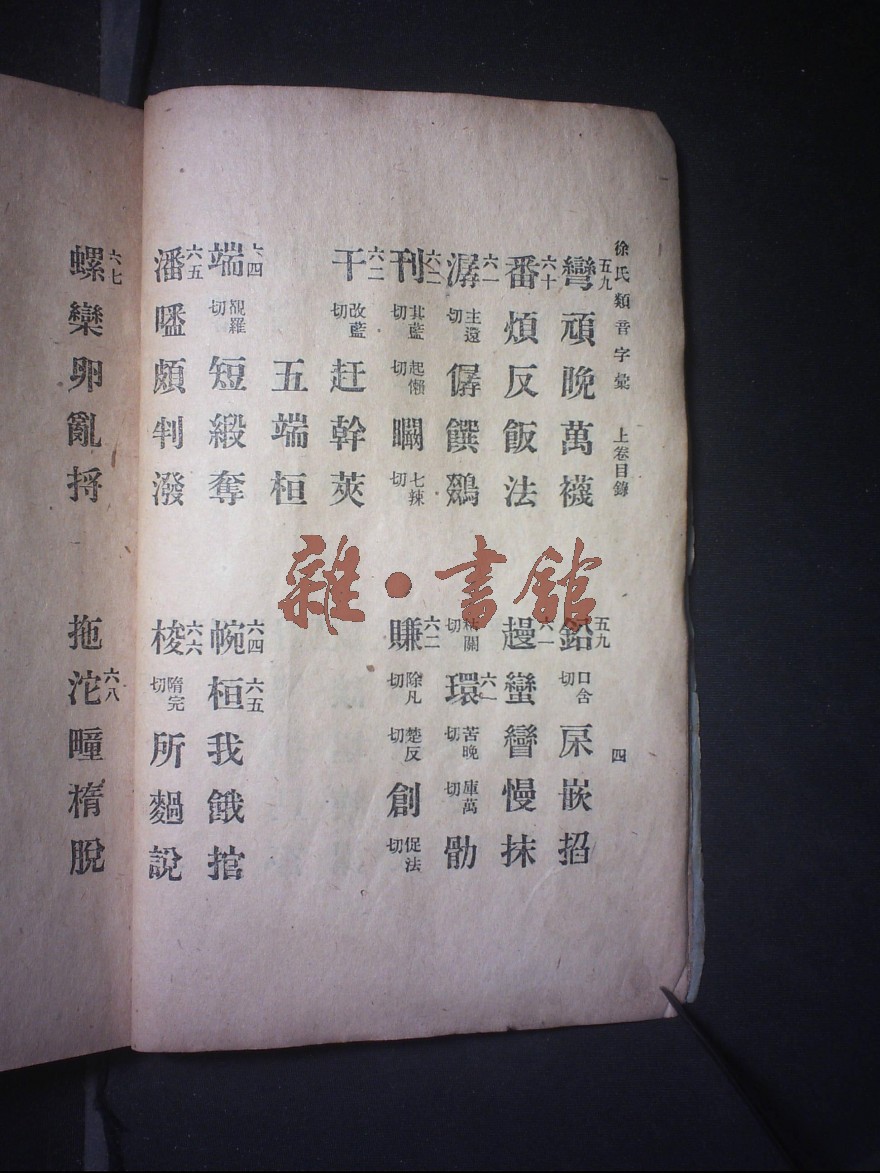 徐氏類音字彙 上卷目錄 四
五九 彎頑晚萬襪 五九 鉛 口含切 嵌掐
六十 番煩反飯法 六一 蠻矕慢抹
六一 潺 主還切 僝饌鵽 關切 六一 環 苦晚切 庫萬切
六二 刊 其藍切 起懶切 七辣切 六二 賺 除凡切 楚反切 創 促法切
六二 干 改藍切 赶幹莢
五端桓
六四 端 覩羅切 短緞奪 六四 帵 六五 桓我餓捾
六五 潘 頗判潑 六六 梭 隋完切 所 說
六七 螺欒卵亂捋 拖 六八 沱疃橢脫
雜·書館